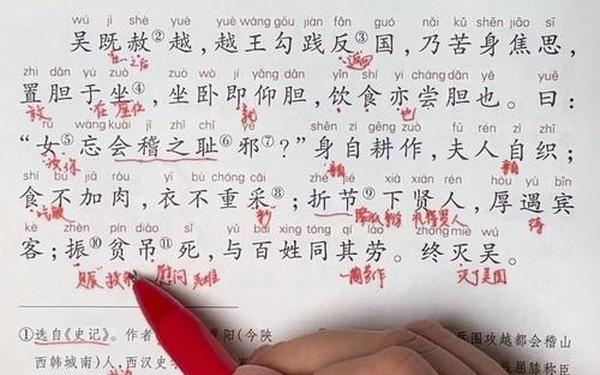 wú jì shè yuè yuè wáng gōu jiàn fǎn guó nǎi kǔ shēn jiāo sī
吴既赦②越,越王勾践反③国,乃苦身焦思,
在…之后 返回
zhì dǎn yú zuò zuò wò jí yǎng dǎn yǐn shí yì cháng dǎn yě yuē
置胆于坐④,坐卧即仰胆,饮食亦尝胆也。曰:
放 在 座位 就 也
rǔ wàng kuài jī zhī chǐ yé shēn zì gēng zuò fū rén zì zhī
“女⑤忘会稽之耻⑥邪⑦?”身自耕作,夫人自织;
汝,你 亲自
shí bù jiā ròu yì bù chóng cǎi zhé jié xià xián rén hòu yù bīn
食不加肉,衣不重采⑧;折节⑨下贤人,厚遇宾
吃饭 彩 礼待贤人 待
kè zhèn pín diào sǐ yǔ bǎi xìng tóng qí láo zhōng miè wú
客;振⑩贫吊⑪死,与百姓同其劳。终灭吴。
赈 慰问 一同劳作 灭了吴国
①选自《史记》。作者 阳(今陕
西韩城南)人,西汉史
兵围攻越都会稽山
屈膝称臣